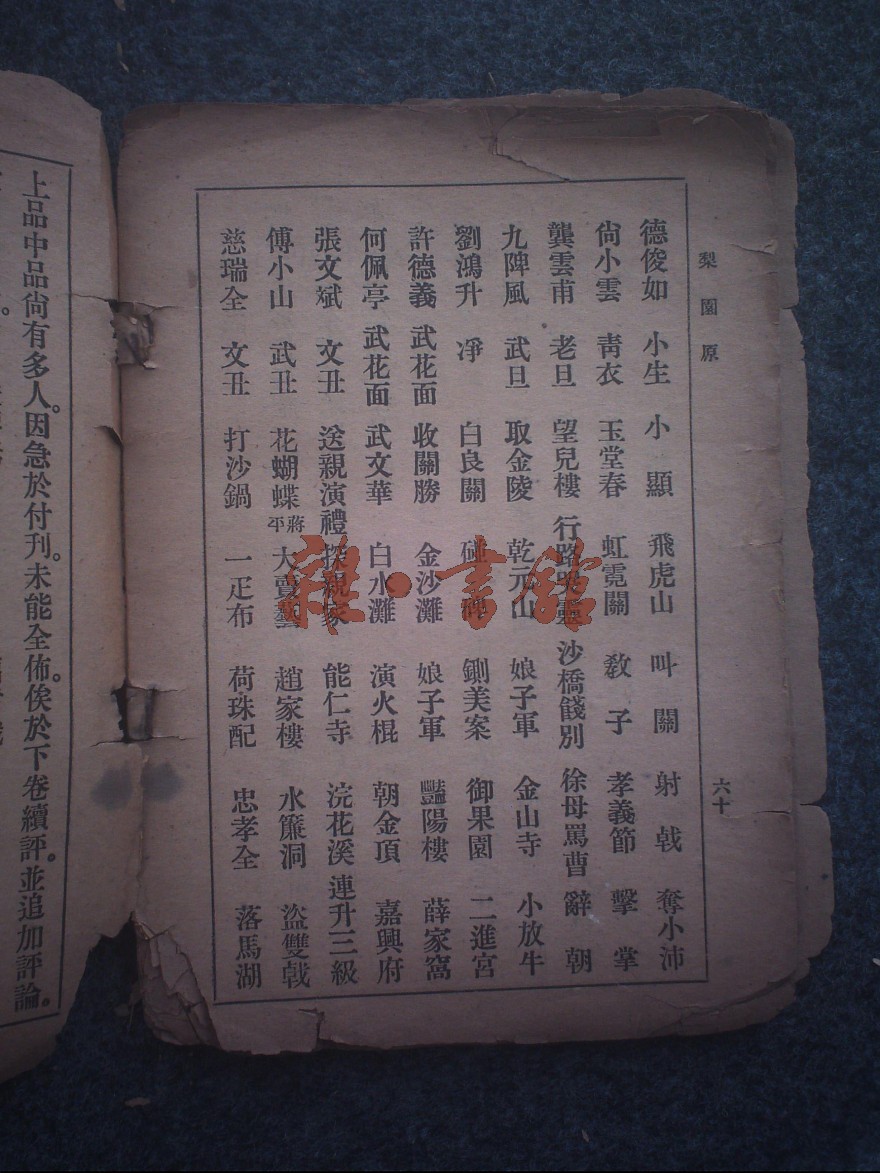 梨園原
六十
德俊如 小生 小顯 飛虎山 叫關 射戟 奪小沛
尙小雲 靑衣 玉堂春 虹霓關 敎子 孝義節 擊掌
龔雲甫 老旦 望兒樓 行路哭靈 沙橋餞別 徐母罵曹 辭朝
九陣風 武旦 取金陵 乾元山 娘子軍 金山寺 小放牛
劉鴻升 凈 白良關 碰碑 鍘美案 御果園 二進宮
許德義 武花面 收關勝 金沙灘 娘子軍 豔陽樓 薛家窩
何佩亭 武花面 武文華 白水灘 演火棍 朝金頂 嘉興府
張文斌 文丑 送親演禮 探親家 能仁寺 浣花溪 連升三級
傅小山 武丑 花蝴蝶 蔣平 大賣藝 趙家樓 水簾洞 盜雙戟
慈瑞全 文丑 打沙鍋 一疋布 荷珠配 忠孝全 落馬湖
上品中品尙有多人。因急於付刊。未能全佈。俟於下卷續評。並追加評論。
雜·書館